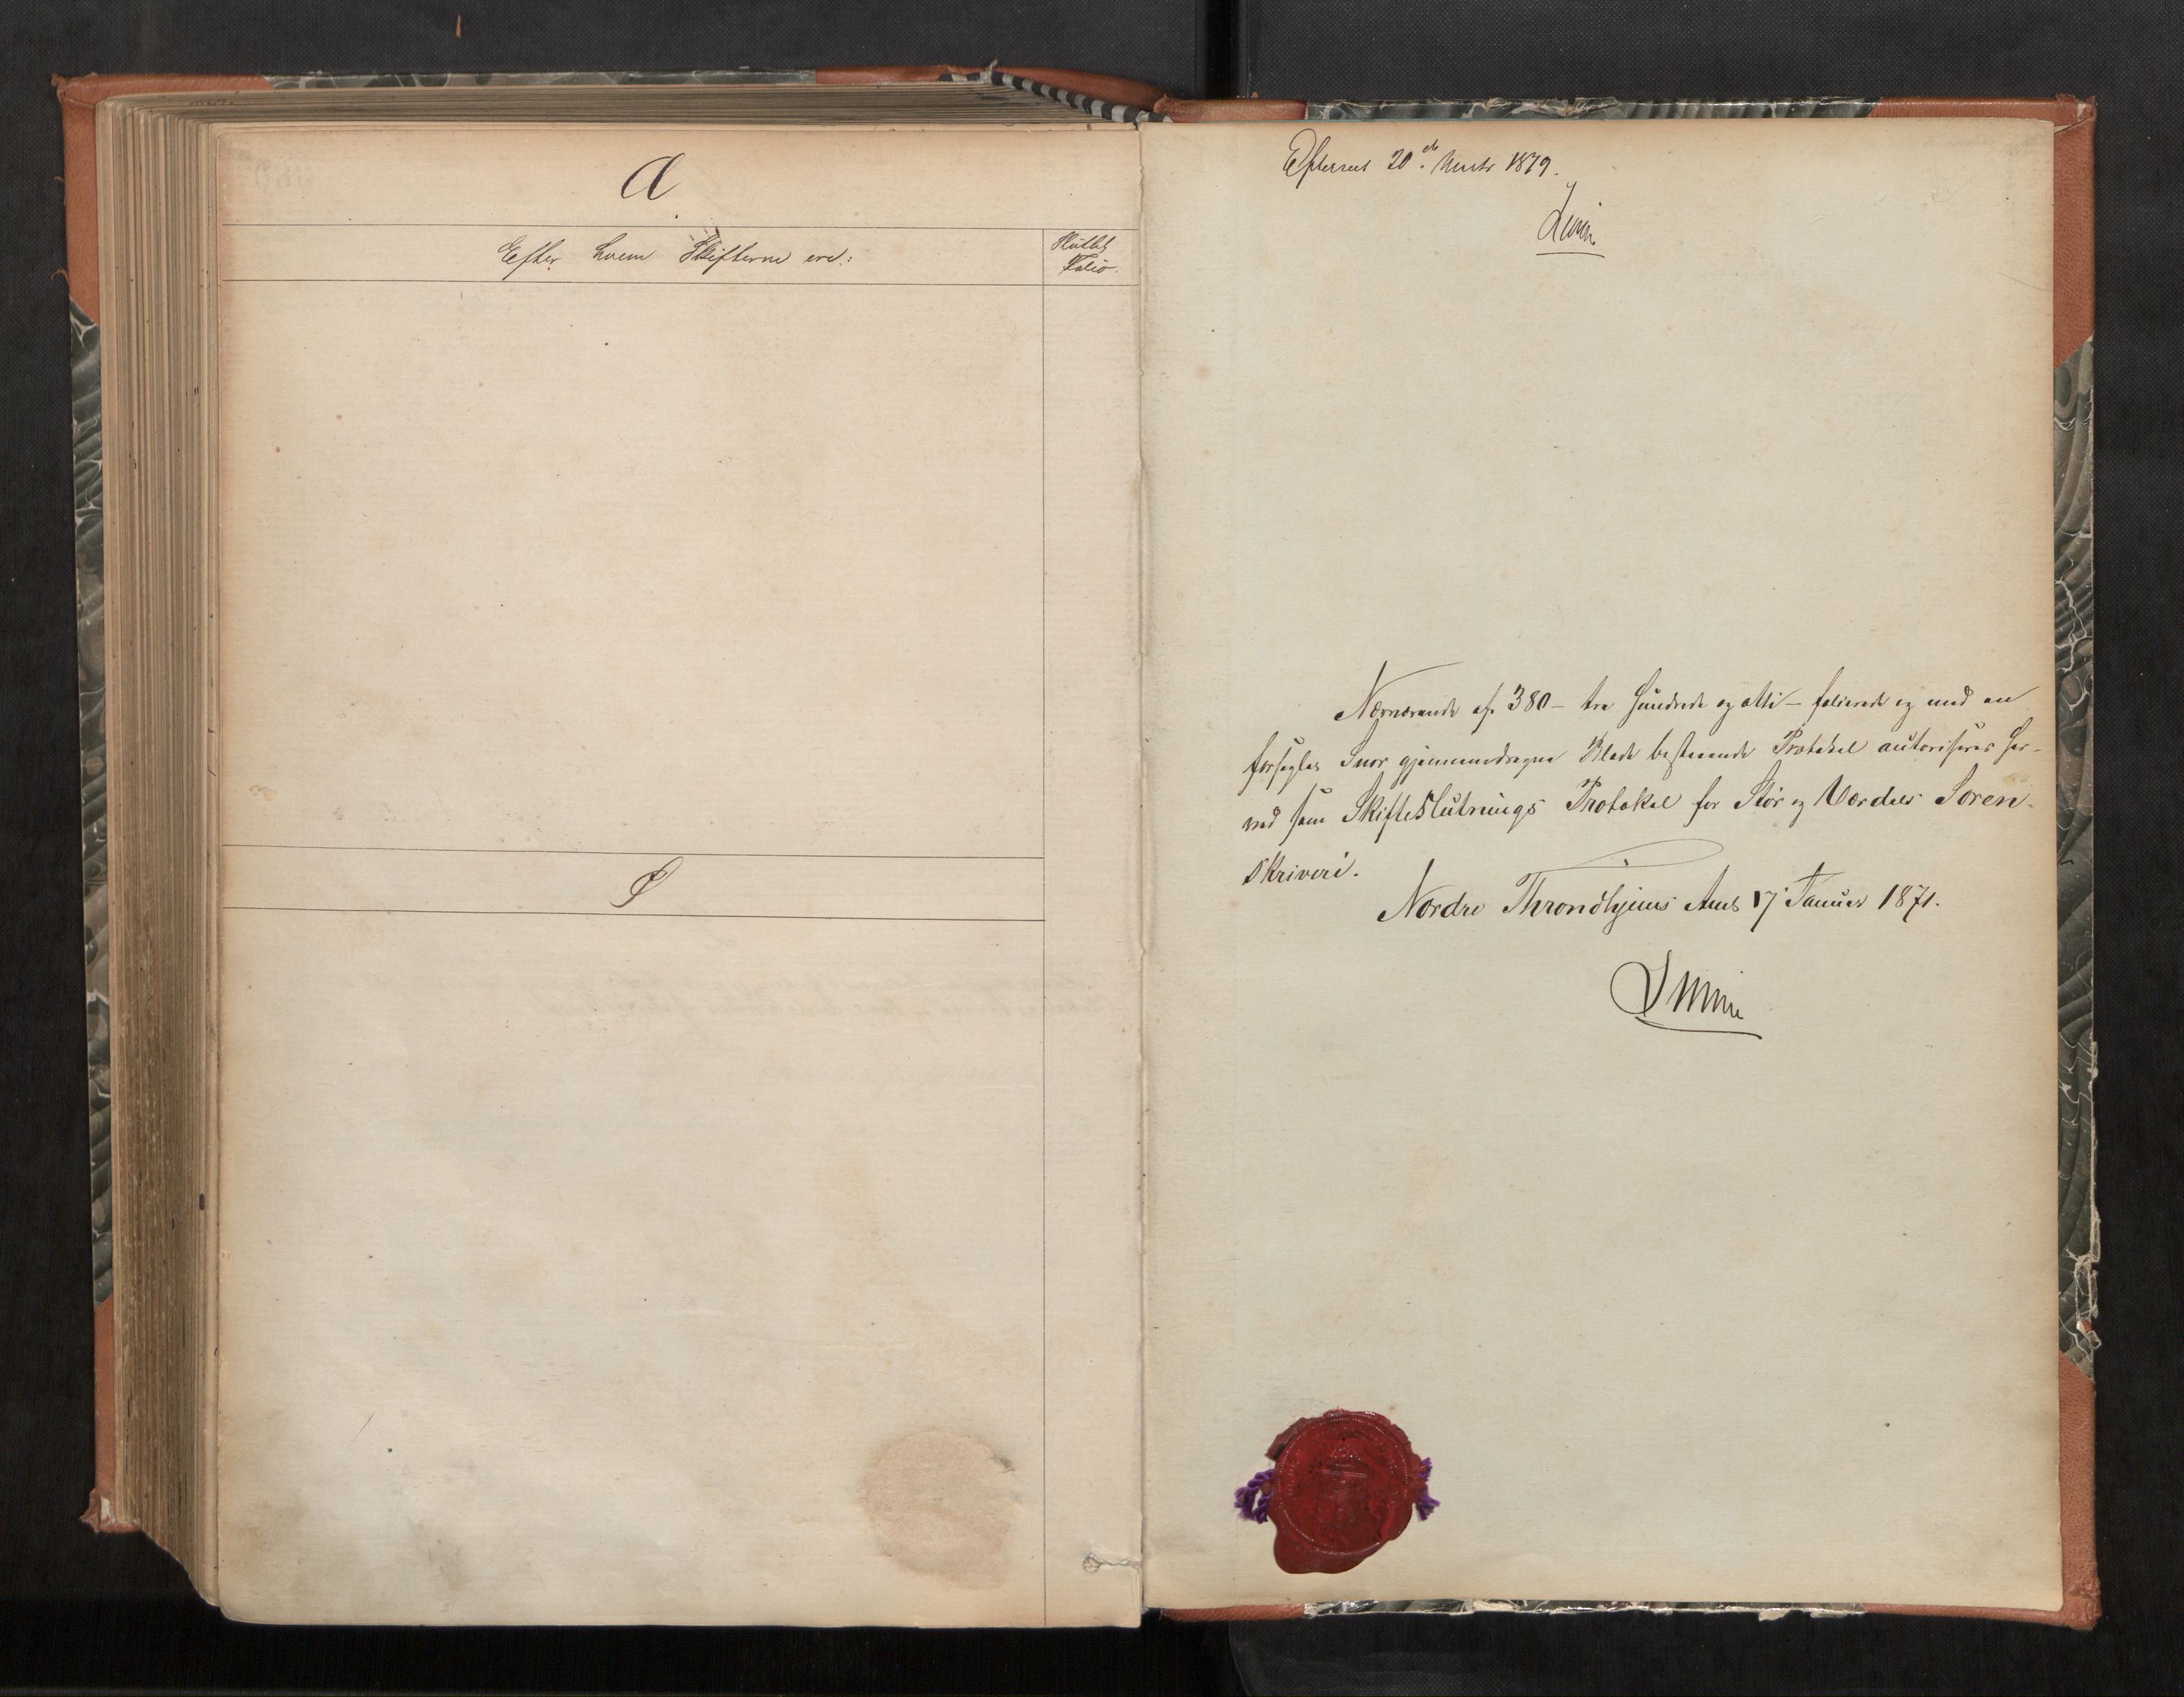 Æ
Efter hvem Skifterne ere:
Sluttet
Folio.
Ø
Efterseet 20de Marts 1879.
Nærværende af 380 – tre hundrede og otti – folierede og med en
forseglet Snor gjennemdragne Blade bestaaende Protokol autoriseres her-
ved som Skifteslutnings Protokol for Stør og Værdals Soren-
skriveri.
Nordre Throndhjems Amt 17 Januar 1871.